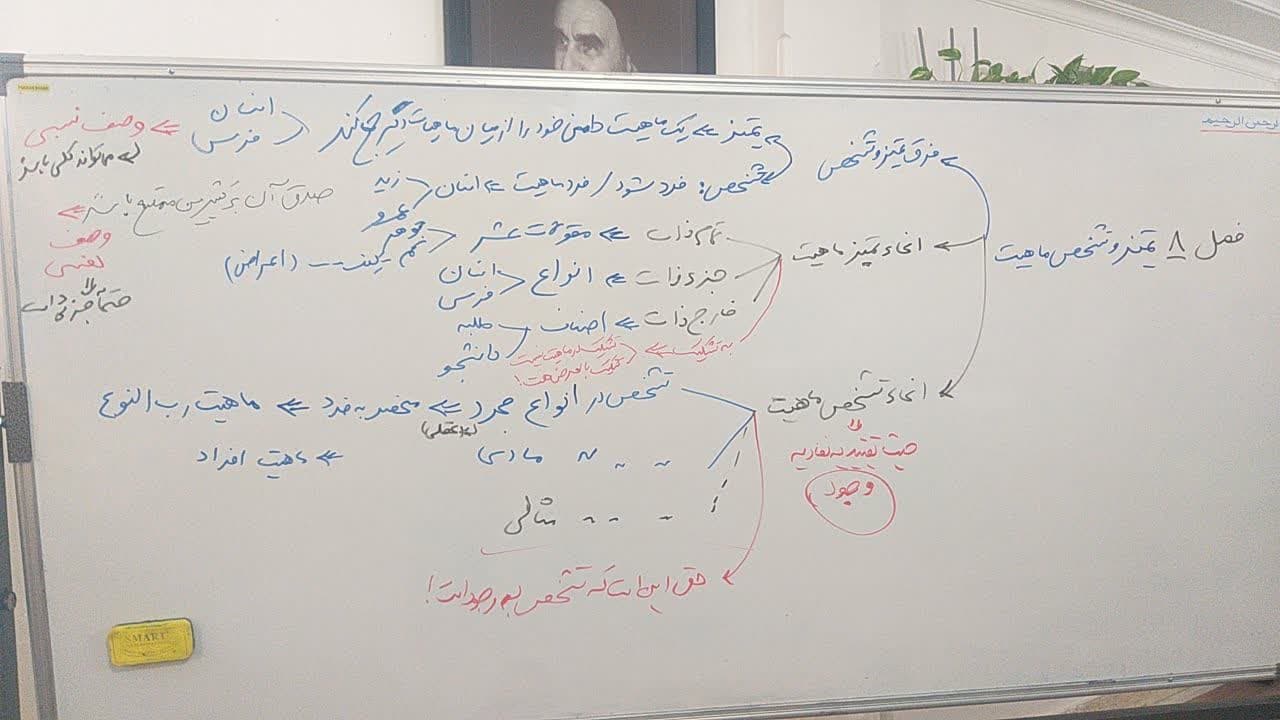 الرحمن الرحیم
فصل ۸ تمیز و تشخص ماهیت
فرق تمیز و تشخص
تمیز => یک ماهیت خود را از میان ماهیات دیگر جدا کند
انسان
فرس
=> وصف نسبی
می‌تواند کلی باشد
تشخص: فرد شود / فرد ماهیت => انسان
زید
عمرو
صدق آن بر کثیرین ممتنع باشد =>
وصف
نفسی
حتماً جزئی
انحاء تمیز ماهیت
تمام ذات => مقولات عشر
جوهر
کم - کیف --- (اعراض)
جزء ذات => انواع
انسان
فرس
خارج ذات => اصناف
طلبه
دانشجو
به تشکیک =>
تشکیک در ماهیت نیست
تشکیک بالعرض هست!
انحاء تشخص ماهیت
حیث تقییدیه نفادیه
وجود
تشخص در انواع مجرد => منحصر به فرد => ماهیت رب النوع
(عقلی)
" " " مادی => ماهیت افراد
" " " مثالی
حق این است که تشخص به وجود است!
SMART